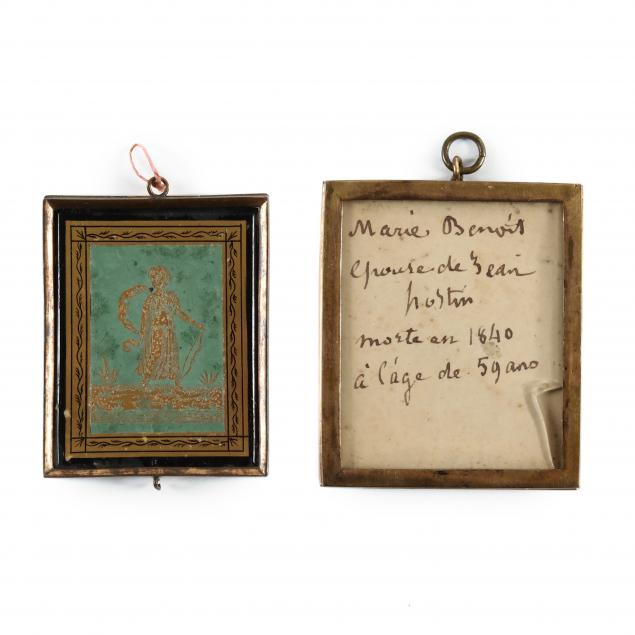 Marie Benoit
epouse de Jean
hostin
morte en 1840
à l'áge de 59 ans